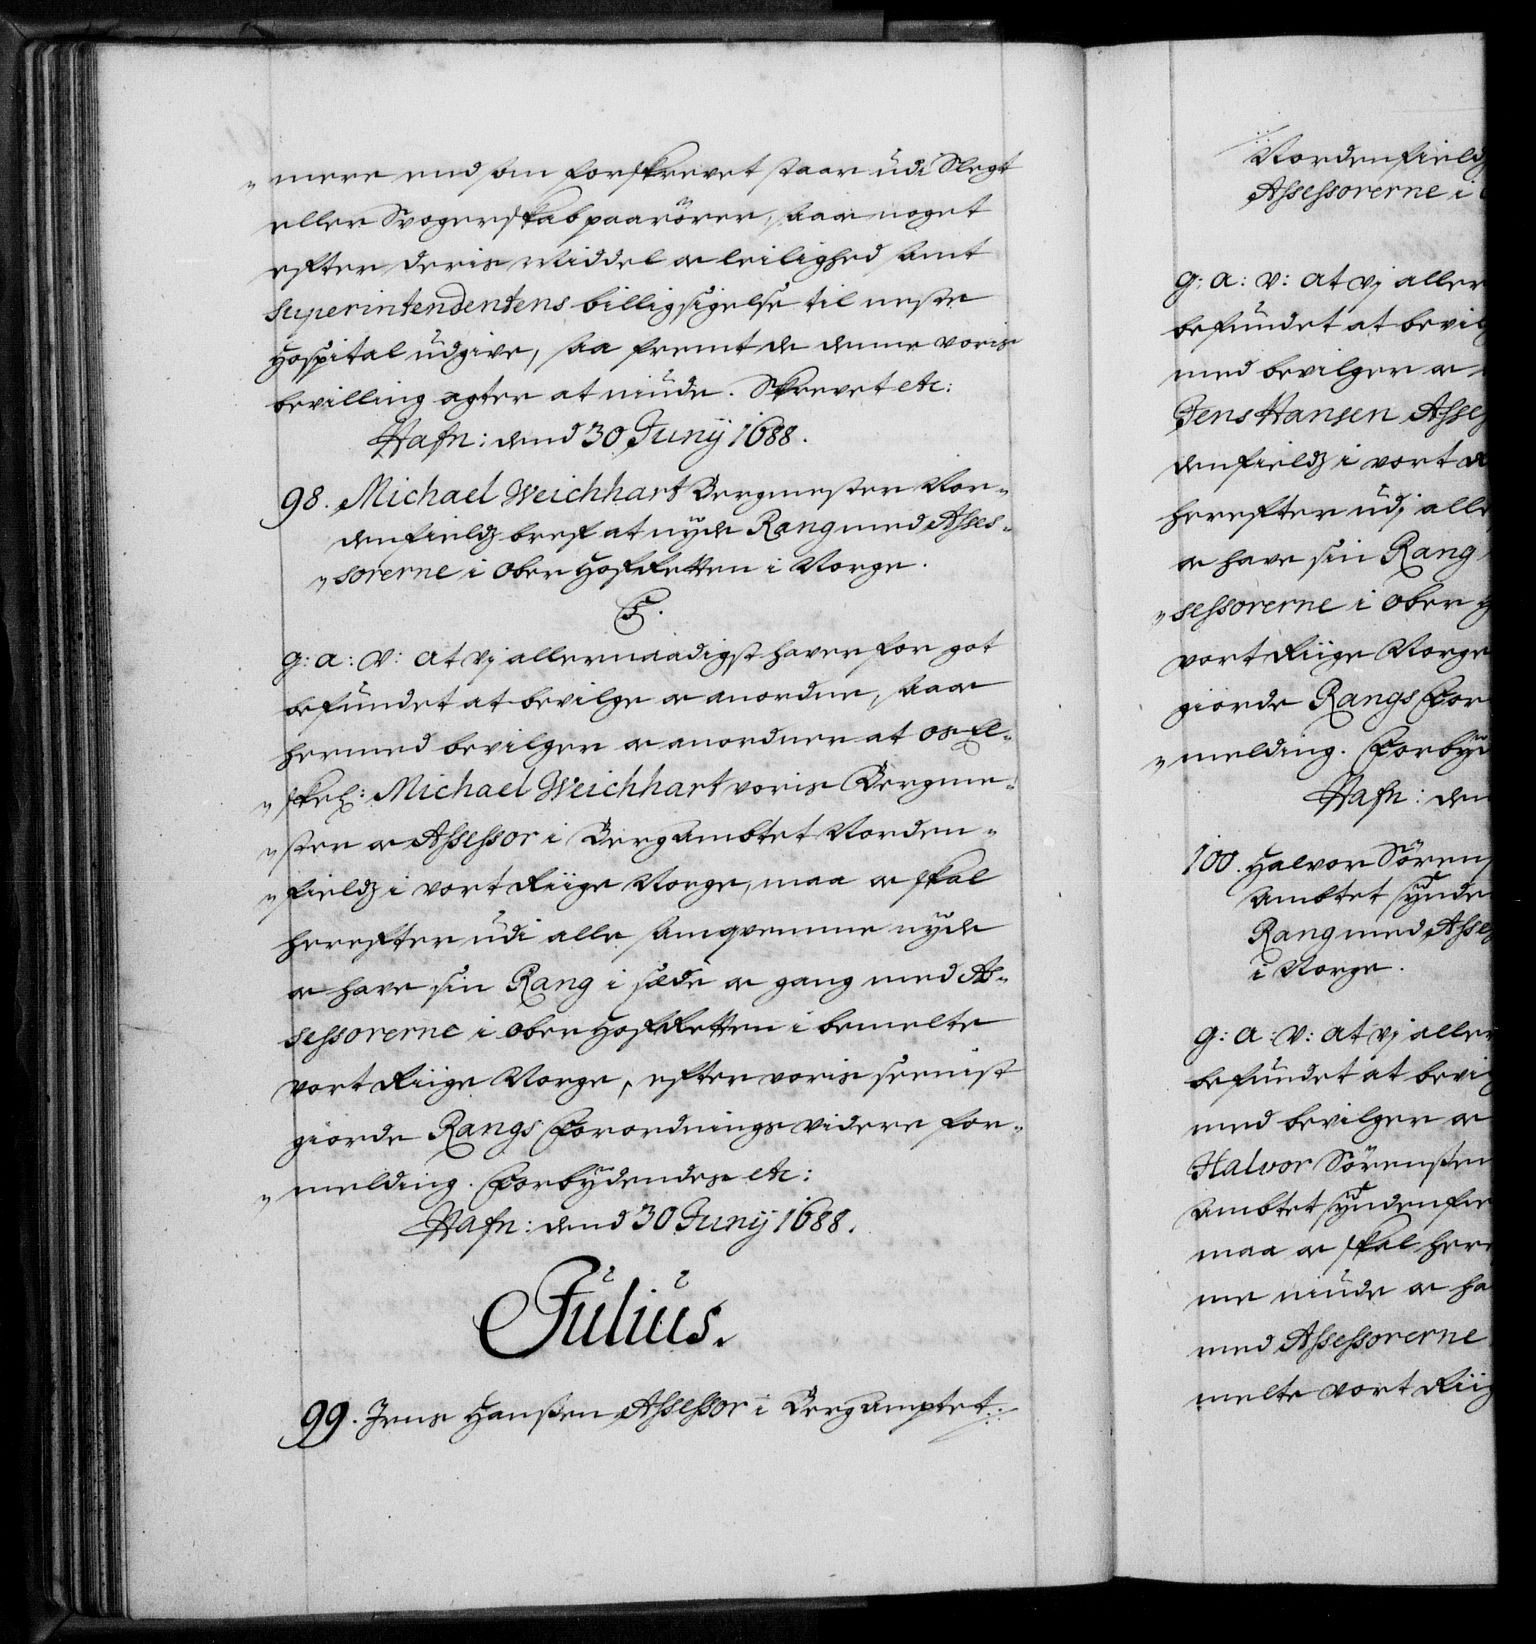 „ mere end som forskrevet staar udi Slegt
eller Svogerskab paarörer, saa og noget
efter deris Middel og leilighed samt
Superintendentens billigsigelse til neste
Hospital udgive, saa fremt de denne voris
bevilling agter at niude. Skrevet etc:
Hafn: dend 30 Junÿ 1688.
98. Michael Weichhart Bergmester Nor„
denfieldz bref at nyde Rang med Asses„
„ sorerne i Ober Hof Retten i Norge.
C5.
G: A: V: At vj allernaadigst hafver for got
befundet at bevilge og anordne, saa og
hermed bevilger og anordner at os El„
„ skel: Michael Weichhart voris Bergme„
„ ster og Assessor i Bergambtet Norden„
„ fieldz i vort Riige Norge, maa og skal
herefter udi alle samqvemme nyde
og have sin Rang i sæde og gang med As„
sessorerne i Ober Hof Retten i bemelte
vort Riige Norge, efter voris seenist
giorde Rangs Forordnings videre for„
„ melding. Forbydendes etc:
Hafn: dend 30 Junÿ 1688.
Julius.
99. Jens Hanssen Assessor i Bergamptet
Nordenfieldz
Assessorerne i
G: A: V: At vj aller
befundet at bevilg
med bevilger og
Jens Hansen Asses
denfieldz i vort R
herefter udj alle
og have sin Rang
„ sessorerne i Ober H
vort Riige Norge
giorde Rangs For
„ melding. Forbyd
Hafn: den
100. Halvor Sörens
Ambtet synde
Rang med Asses
i Norge.
G: A: V: At vj aller
befundet at bevilg
med bevilger og
Halvor Sörenssen
Ambtet syndenfie
maa og skal here
me niude og ha
med Assessorerne
melte vort Riig